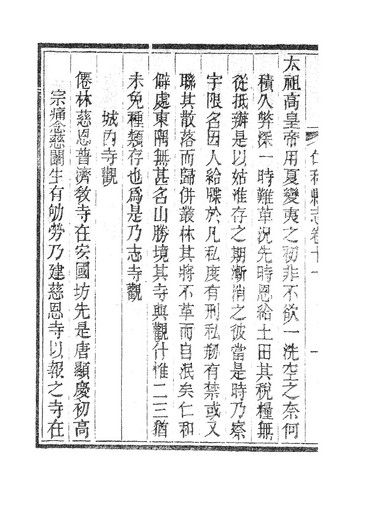 太祖高皇帝用夏變夷之初非不欲一洗空之奈何
積久弊深一時難革況先時恩給土田其稅糧無
從抵辦是以姑准存之期漸消之彼當是時乃察
宇限名因人給牒於凡私度有刑私剏有禁或又
聯其散落而歸併叢林其將不革而自泯矣仁和
僻處東隅無甚名山勝境其寺與觀什惟二三猶
未免種類存也爲是乃志寺觀
城內寺觀
僊林慈恩普濟教寺在安國坊先是唐顯慶初高
宗痛念慈闈生有劬勞乃建慈恩寺以報之寺在
仁和縣志卷十一
一